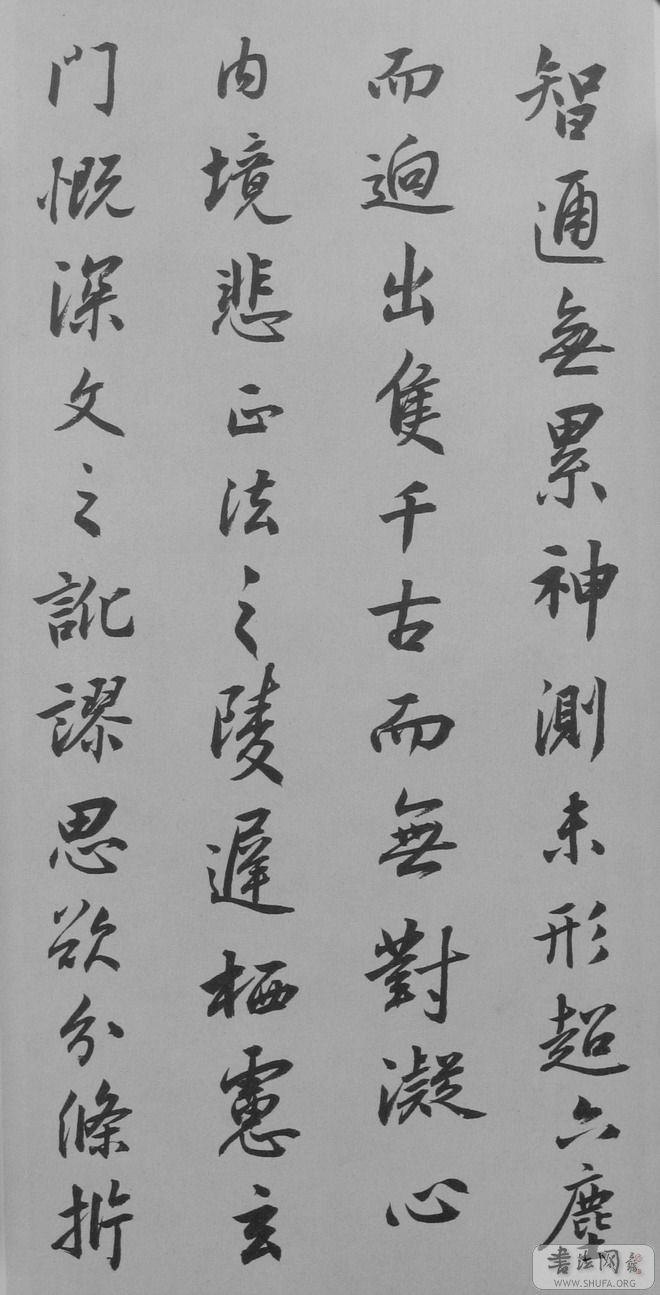 智通無累神測未形超六塵
而迥出隻千古而無對凝心
内境悲正法之陵遲栖慮玄
門慨深文之訛謬思欲分條析
書法网
WWW.SHUFA.ORG